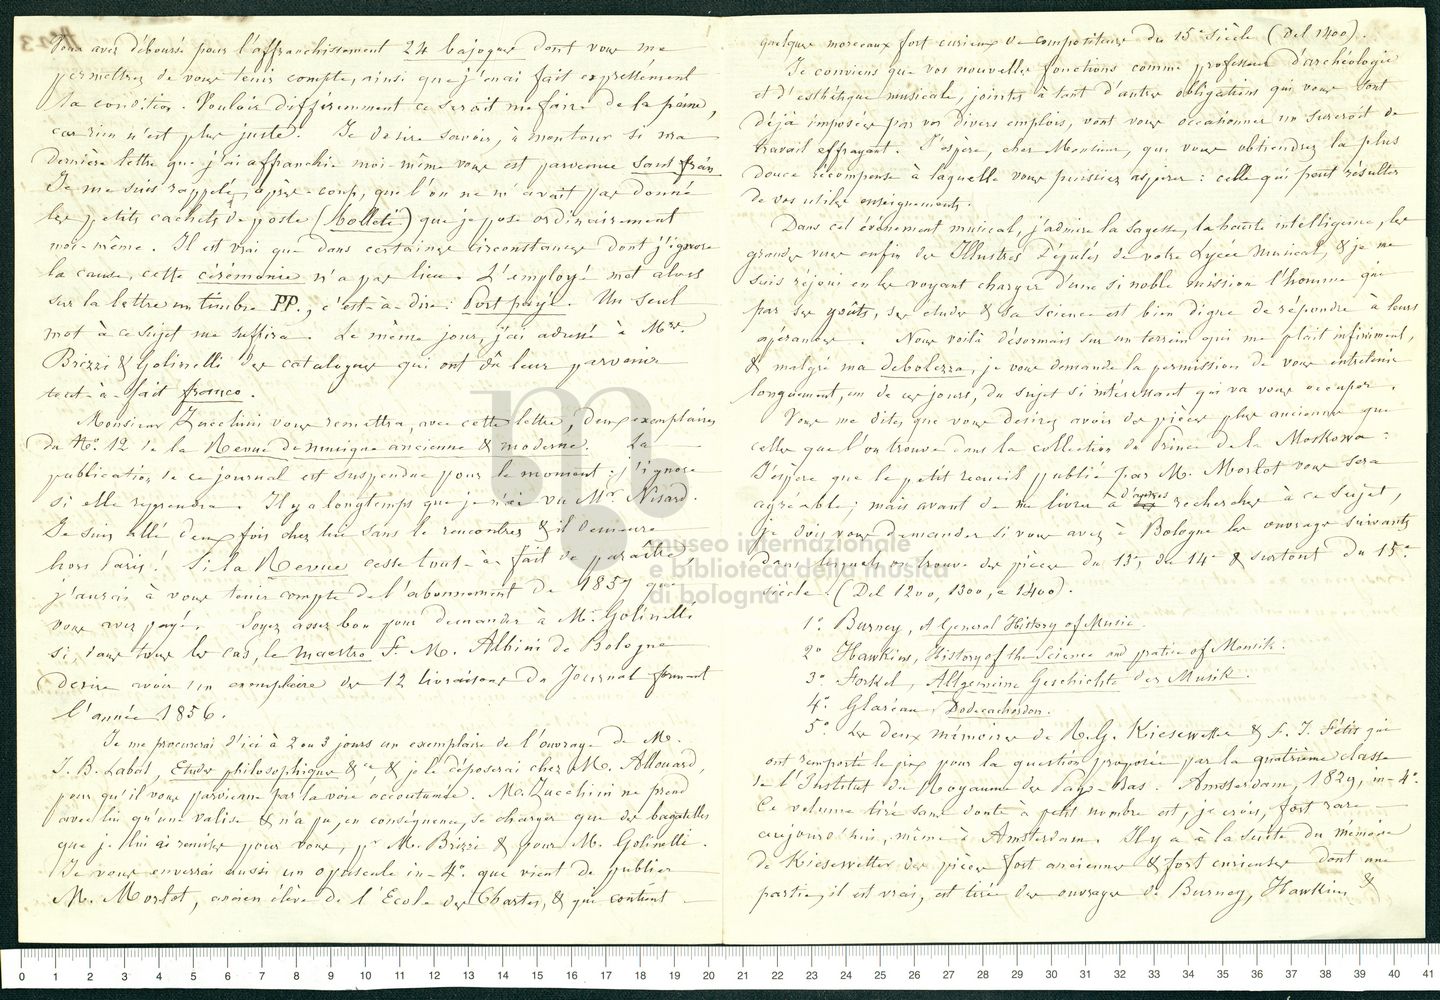 Vous avez déboursé pour l'affranchissement 24 bajoques dont vous me
permettrez de vous tenir compte, ainsi que j'en ai fait expressément
la condition. Vouloir différemment ce serait me faire de la peine,
car rien n'est plus juste. Je désire savoir, à mon tour si ma
dernière lettre que j'ai affranchie moi-même vous est parvenue sans frais
Je me suis rappelé, après-coup, que l'on ne m'avait pas donné
les petits cachets de poste (bolleti) que je pose ordinairement
moi-même. Il est vrai que dans certaines circonstances dont j'ignore
la cause, cette cérémonie n'a pas lieu. L'employé met alors
sur la lettre un timbre PP., c'est-à-dire: Port payé. Un seul
mot à ce sujet me suffira. Le même jour, j'ai adressé à Mrs.
Brizzi & Golinelli des catalogues qui ont dû leur parvenir
tout-à-fait franco.
Monsieur Zucchini vous remettra, avec cette lettre, deux exemplaires
du No. 12 de la Revue de musique ancienne & moderne. La
publication de ce journal est suspendue pour le moment: j'ignore
si elle reprendra. Il y a longtemps que je n'ai vu Mr. Nisard.
Je suis allé deux fois chez lui sans le rencontrer & il demeure
hors Paris. Si la Revue cesse tout-à-fait de paraître,
j'aurai à vous tenir compte de l'abonnement de 1857 que
vous avez payé. Soyez assez bon pour demander à M. Golinelli
si, dans tous les cas, le maestro F. M. Albini de Bologne
désire avoir un exemplaire des 12 livraisons du Journal formant
l'année 1856.
Je me procurerai d'ici à 2 ou 3 jours un exemplaire de l'ouvrage de M.
J. B. Labat, Etudes philosophiques &a, & je le déposerai chez M. Allouard,
pour qu'il vous parvienne par la voie accoutumée. M. Zucchini ne prend
avec lui qu'une valise & n'a pu, en conséquence, se charger que des bagatelles
que je lui ai remises pour vous, pr M. Brizzi & pour M. Golinelli.
Je vous enverrai aussi un opuscule in-4o. que vient de publier
M. Morlot, ancien élève de l'Ecole des Chartes, & qui contient
quelques morceaux fort curieux de compositeurs du 15e siècle (Del 1400).
Je conviens que vos nouvelles fonctions comme professeur d'archéologie
et d'esthétique musicale, jointes à tant d'autres obligations qui vous sont
déjà imposées par vos divers emplois, vont vous occasionner un surcroît de
travail effrayant. J'espère, cher Monsieur, que vous obtiendrez la plus
douce récompense à laquelle vous puissiez aspirer: celle qui peut résulter
de vos utiles enseignements.
Dans cet événement musical, j'admire la sagesse, la haute intelligence, les
grandes vues enfin des Illustres Députés de votre Lycée Musical, & je me
suis réjoui en les voyant charger d'une si noble mission l'homme que
par ses goûts, ses études & sa science est bien digne de répondre à leurs
espérances. Nous voilà désormais sur un terrein qui me plaît infiniment,
& malgré ma debolezza, je vous demande la permission de vous entretenir
longuement, un de ces jours, du sujet si intéressant qui va vous occuper.
Vous me dites que vous desirez avoir des pièces plus anciennes que
celles que l'on trouve dans la collection du Prince de la Moskowa:
J'espère que le petit recueil publié par M. Morlot vous sera
agréable; mais avant de me livrer à d'autres recherches à ce sujet,
je dois vous demander si vous avez à Bologne les ouvrages suivants
dans lesquels on trouve des pièces du 13e, du 14e & surtout du 15e
siècle (Del 1200, 1300, e 1400).
1o. Burney, A General History of Music.
2o Hawkins, History of the Science and pratice of Mousik.
3o Forkel, Allgemeine Geschichte der Musik.
4o. Glaréan, Dodecachordon.
5o Les deux mémoires de R. G. Kiesewetter & F. J. Fétis qui
ont remporté le prix pour la question proposée par la quatrième classe
de l'Institut du Royaume des Pays-Bas. Amsterdam, 1829, in-4o.
Ce volume tiré sans doute à petit nombre est, je crois, fort rare
aujourd'hui, même à Amsterdam. Il y a à la suite du mémoire
de Kiesewetter des pièces fort anciennes & fort curieuses dont une
partie, il est vrai, est tirée des ouvrages de Burney, Hawkins &
museo internazionale
e biblioteca della musica
di bologna
0 1 2 3 4 5 6 7 8 9 10 11 12 13 14 15 16 17 18 19 20 21 22 23 24 25 26 27 28 29 30 31 32 33 34 35 36 37 38 39 40 41